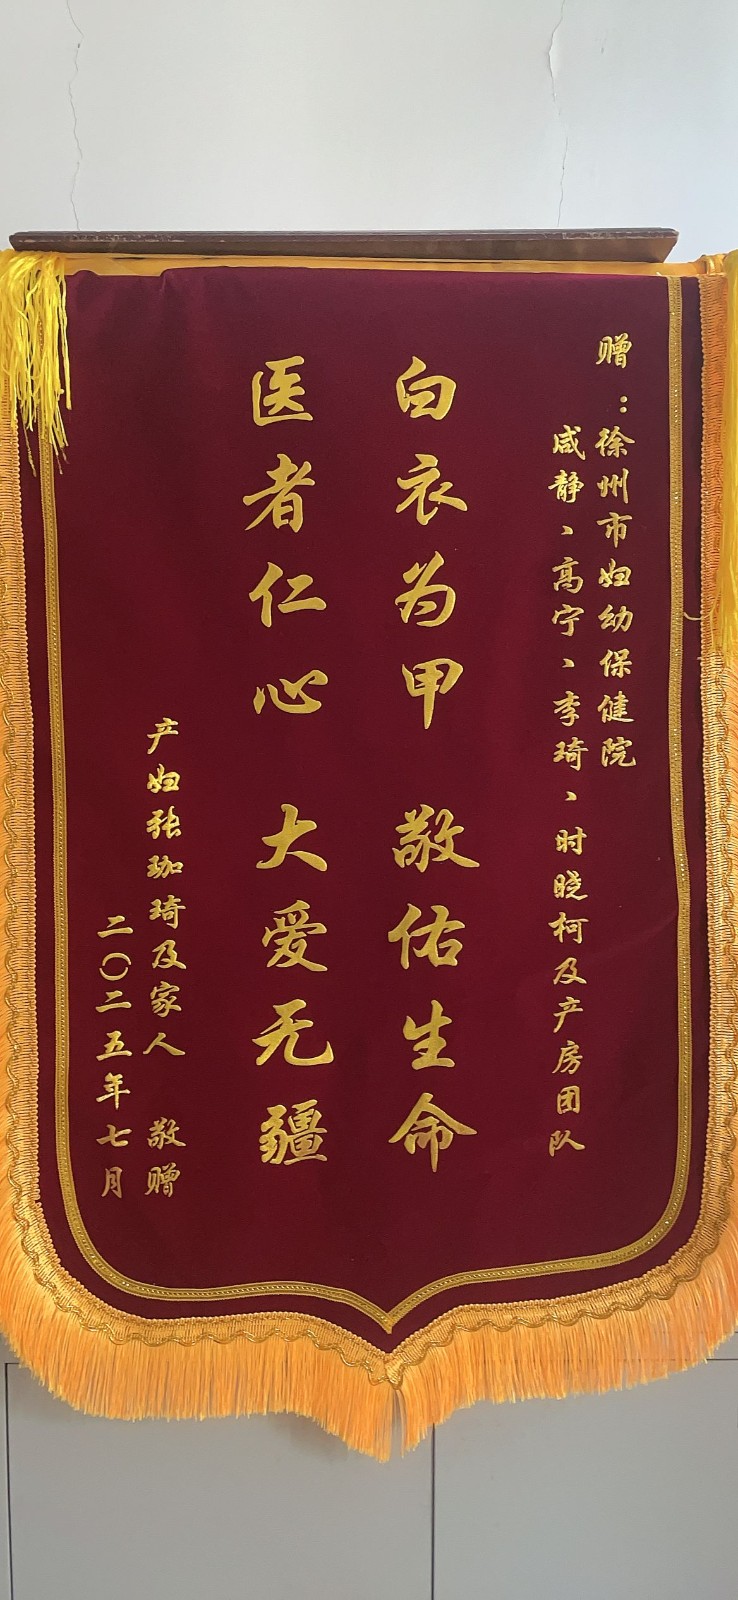 赠：徐州市妇幼保健院
咸静、高宁、李琦、时晓柯及产房团队
白衣为甲 敬佑生命
医者仁心 大爱无疆
产妇张珈琦及家人 敬赠
二〇二五年七月